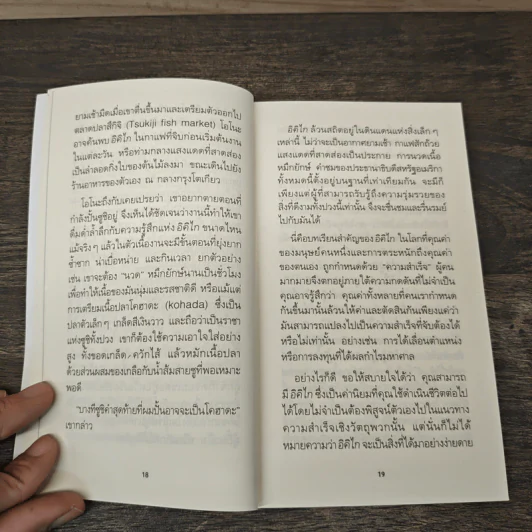 ยามเช้ามืดเมื่อเขาตื่นขึ้นมาและเตรียมตัวออกไป
ตลาดปลาสึกิจิ (Tsukiji fish market) โอโนะ
อาจค้นพบ อิคิไก ในกาแฟที่จิบก่อนเริ่มต้นงาน
ในแต่ละวัน หรือท่ามกลางแสงแดดที่สาดส่อง
เป็นลำลอดกิ่งใบของต้นไม้ลงมา ขณะเดินไปยัง
ร้านอาหารของตัวเอง ณ กลางกรุงโตเกียว
โอโนะถึงกับเคยเปรยว่า เขาอยากตายตอนที่
กำลังปั้นซูชิอยู่ จึงเห็นได้ชัดเจนว่างานนี้ทำให้เขา
ดื่มด่ำล้ำลึกกับความรู้สึกแห่ง อิคิไก ขนาดไหน
แม้จริงๆ แล้วในตัวเนื้องานจะมีขั้นตอนที่ยุ่งยาก
ซ้ำซาก น่าเบื่อหน่าย และกินเวลา ยกตัวอย่าง
เช่น เขาจะต้อง “นวด” หมึกยักษ์นานเป็นชั่วโมง
เพื่อทำให้เนื้อของมันนุ่มและรสชาติดี หรือแม้แต่
การเตรียมเนื้อปลาโคฮาดะ (kohada) ซึ่งเป็น
ปลาตัวเล็กๆ เกล็ดสีเงินวาว และถือว่าเป็นราชา
แห่งซูชิทั้งปวง เขาก็ต้องใช้ความเอาใจใส่อย่าง
สูง ทั้งขอดเกล็ด ควักไส้ แล้วหมักเนื้อปลา
ด้วยส่วนผสมของเกลือกับน้ำส้มสายชูที่พอเหมาะ
พอดี
“บางทีซูชิคำสุดท้ายที่ผมปั้นอาจจะเป็นโคฮาดะ”
เขากล่าว
18
อิคิไก ล้วนสถิตอยู่ในดินแดนแห่งสิ่งเล็กๆ
เหล่านี้ ไม่ว่าจะเป็นอากาศยามเช้า กาแฟสักถ้วย
แสงแดดที่สาดส่องเป็นประกาย การนวดเนื้อ
หมึกยักษ์ คำชมของประธานาธิบดีสหรัฐอเมริกา
ทั้งหมดนี้ตั้งอยู่บนฐานที่เท่าเทียมกัน จะมีก็
เพียงแต่ผู้ที่สามารถรับรู้ถึงความรุ่มรวยของ
สิ่งที่ดีงามทั้งปวงนี้เท่านั้น จึงจะชื่นชมและรื่นรมย์
ไปกับมันได้
นี่คือบทเรียนสำคัญของ อิคิไก ในโลกที่คุณค่า
ของมนุษย์คนหนึ่งและการตระหนักถึงคุณค่า
ของตนเอง ถูกกำหนดด้วย “ความสำเร็จ” ผู้คน
มากมายจึงตกอยู่ภายใต้ความกดดันที่ไม่จำเป็น
คุณอาจรู้สึกว่า คุณค่าทั้งหลายที่คนเรากำหนด
กันขึ้นมานั้นล้วนให้ค่าและตัดสินกันเพียงแค่ว่า
มันสามารถแปลงไปเป็นความสำเร็จที่จับต้องได้
หรือไม่เท่านั้น อย่างเช่น การได้เลื่อนตำแหน่ง
หรือการลงทุนที่ได้ผลกำไรมหาศาล
อย่างไรก็ดี ขอให้สบายใจได้ว่า คุณสามารถ
มี อิคิไก ซึ่งเป็นค่านิยมที่คุณใช้ดำเนินชีวิตต่อไป
ได้โดยไม่จำเป็นต้องพิสูจน์ตัวเองไปในแนวทาง
ความสำเร็จเชิงวัตถุพวกนั้น แต่นั่นก็ไม่ได้
หมายความว่า อิคิไก จะเป็นสิ่งที่ได้มาอย่างง่ายดาย
19